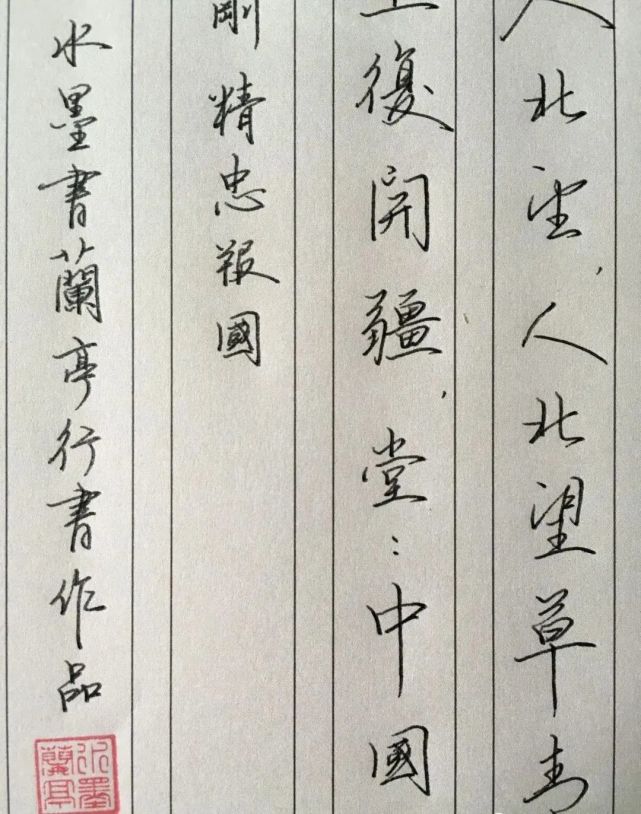 人北望,人北望草青
復開疆,堂:中國
剛精忠報國
水墨書蘭亭行書作品
水墨蘭亭